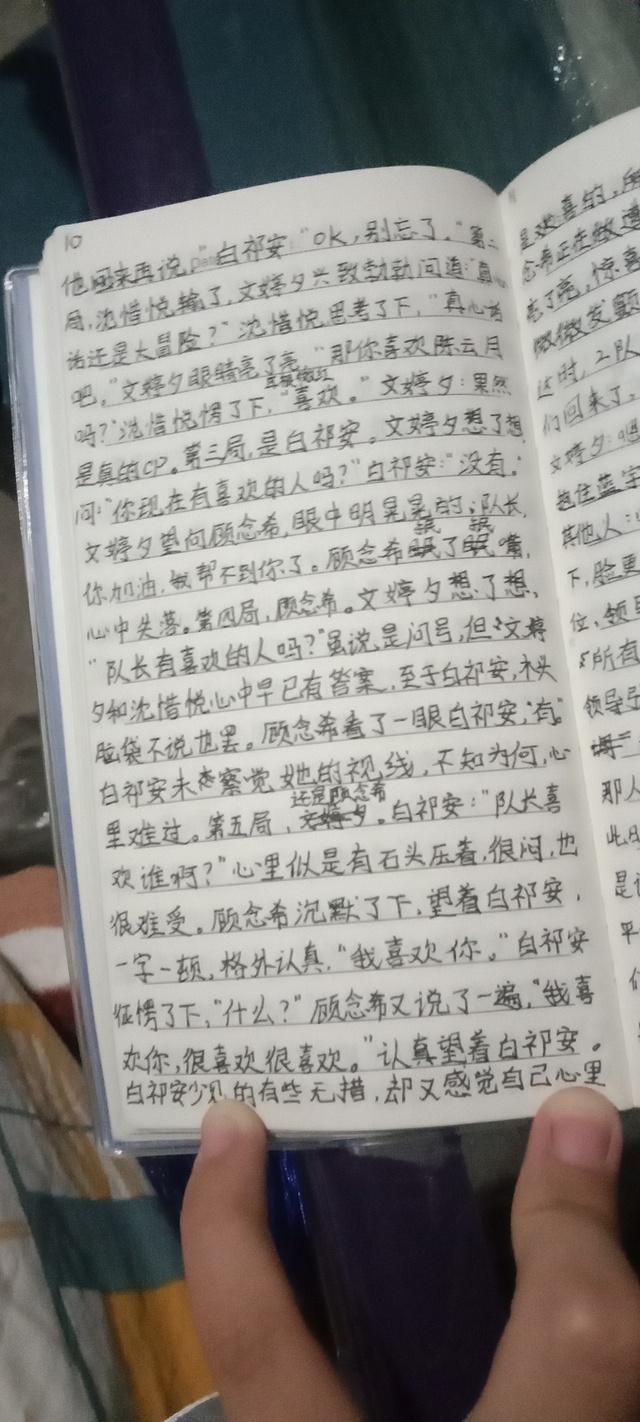 10
他回来再说。"白祁安:"OK,别忘了。"第二
局,沈惜悦输了,文婷夕兴致勃勃问道:"真心
话还是大冒险?"沈惜悦思考了下,"真心话
吧。"文婷夕眼睛亮了亮,"那你喜欢陈云月
吗?"沈惜悦愣了下,"喜欢。"文婷夕:果然
是真的CP。第三局,是白祁安。文婷夕想了想,
问:"你现在有喜欢的人吗?"白祁安:"没有。"
文婷夕望向顾念希,眼中明晃晃的:队长,
你加油,我帮不到你了。顾念希抿了抿嘴,
心中失落。第四局,顾念希。文婷夕想了想,
"队长有喜欢的人吗?"虽说是问号,但文婷
夕和沈惜悦心中早已有答案,至于白祁安,木头
脑袋不说也罢。顾念希看了一眼白祁安,"有。"
白祁安未察觉她的视线,不知为何,心
里难过。第五局,还是顾念希。白祁安:"队长喜
欢谁啊?"心里似是有石头压着,很闷,也
很难受。顾念希沉默了下,望着白祁安,
一字一顿,格外认真,"我喜欢你。"白祁安
怔愣了下,"什么?"顾念希又说了一遍,"我喜
欢你,很喜欢很喜欢。"认真望着白祁安。
白祁安少见的有些无措,却又感觉自己心里
喜的,所
念希正在做遭
亮了亮,惊喜
微微发颤
这时,2队
们回来了。
文婷夕:吧
其他人:
下,脸更
位,领
所有
领导
那人
此时
是
平